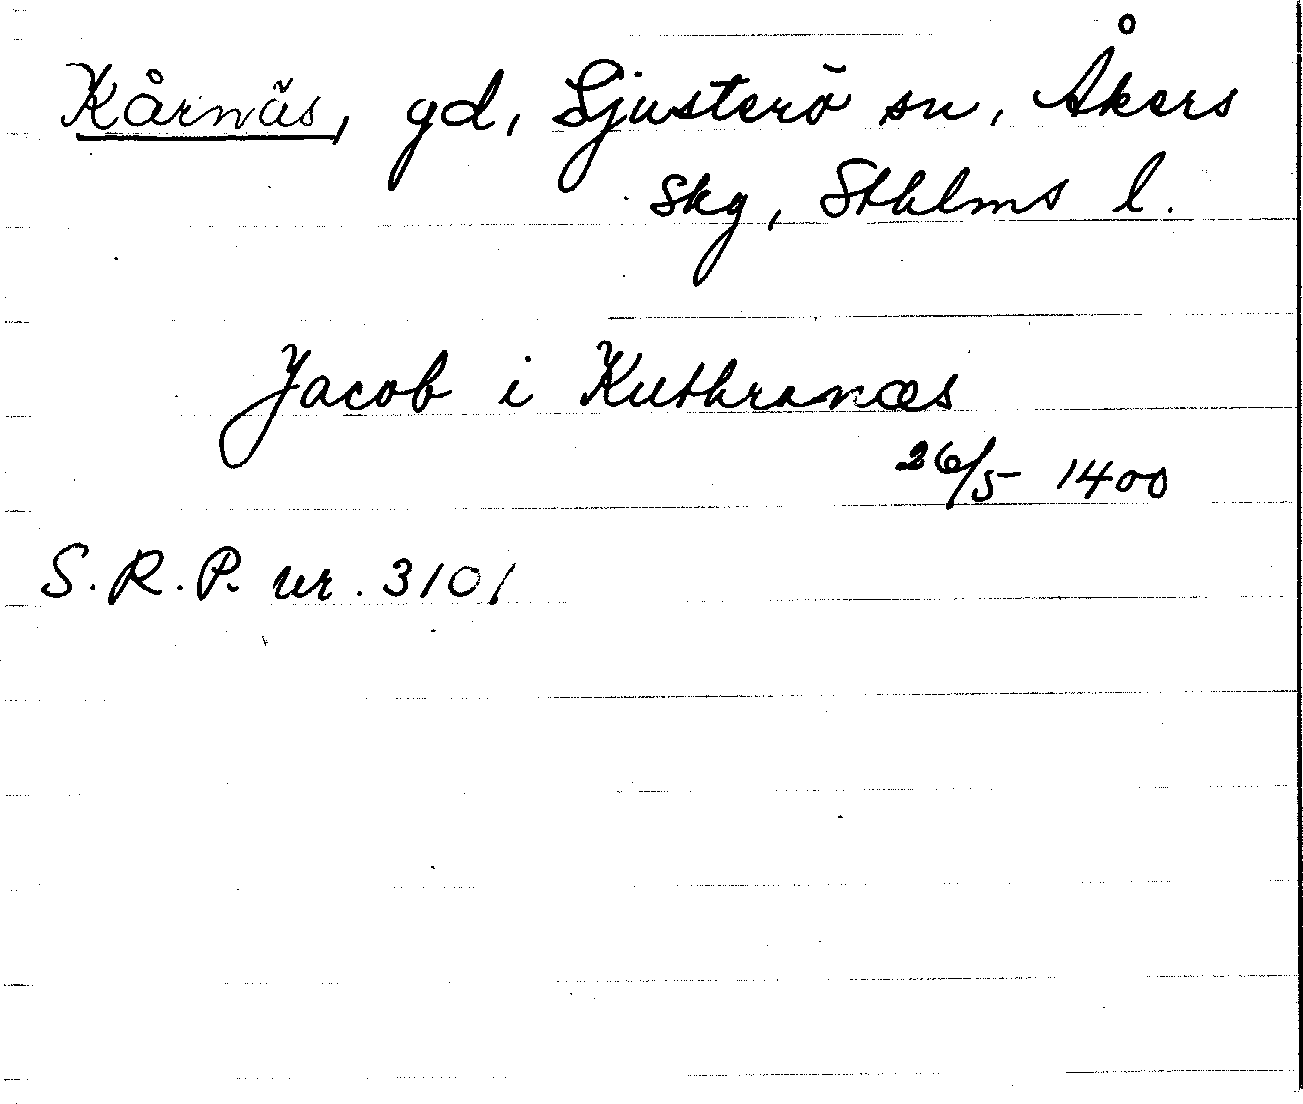 Kårnäs, gd, Ljusterö sn, Åkers
skg, Sthlms l.
Jacob i Kuthranæs
26/5 1400
S.R.P. nr. 3101